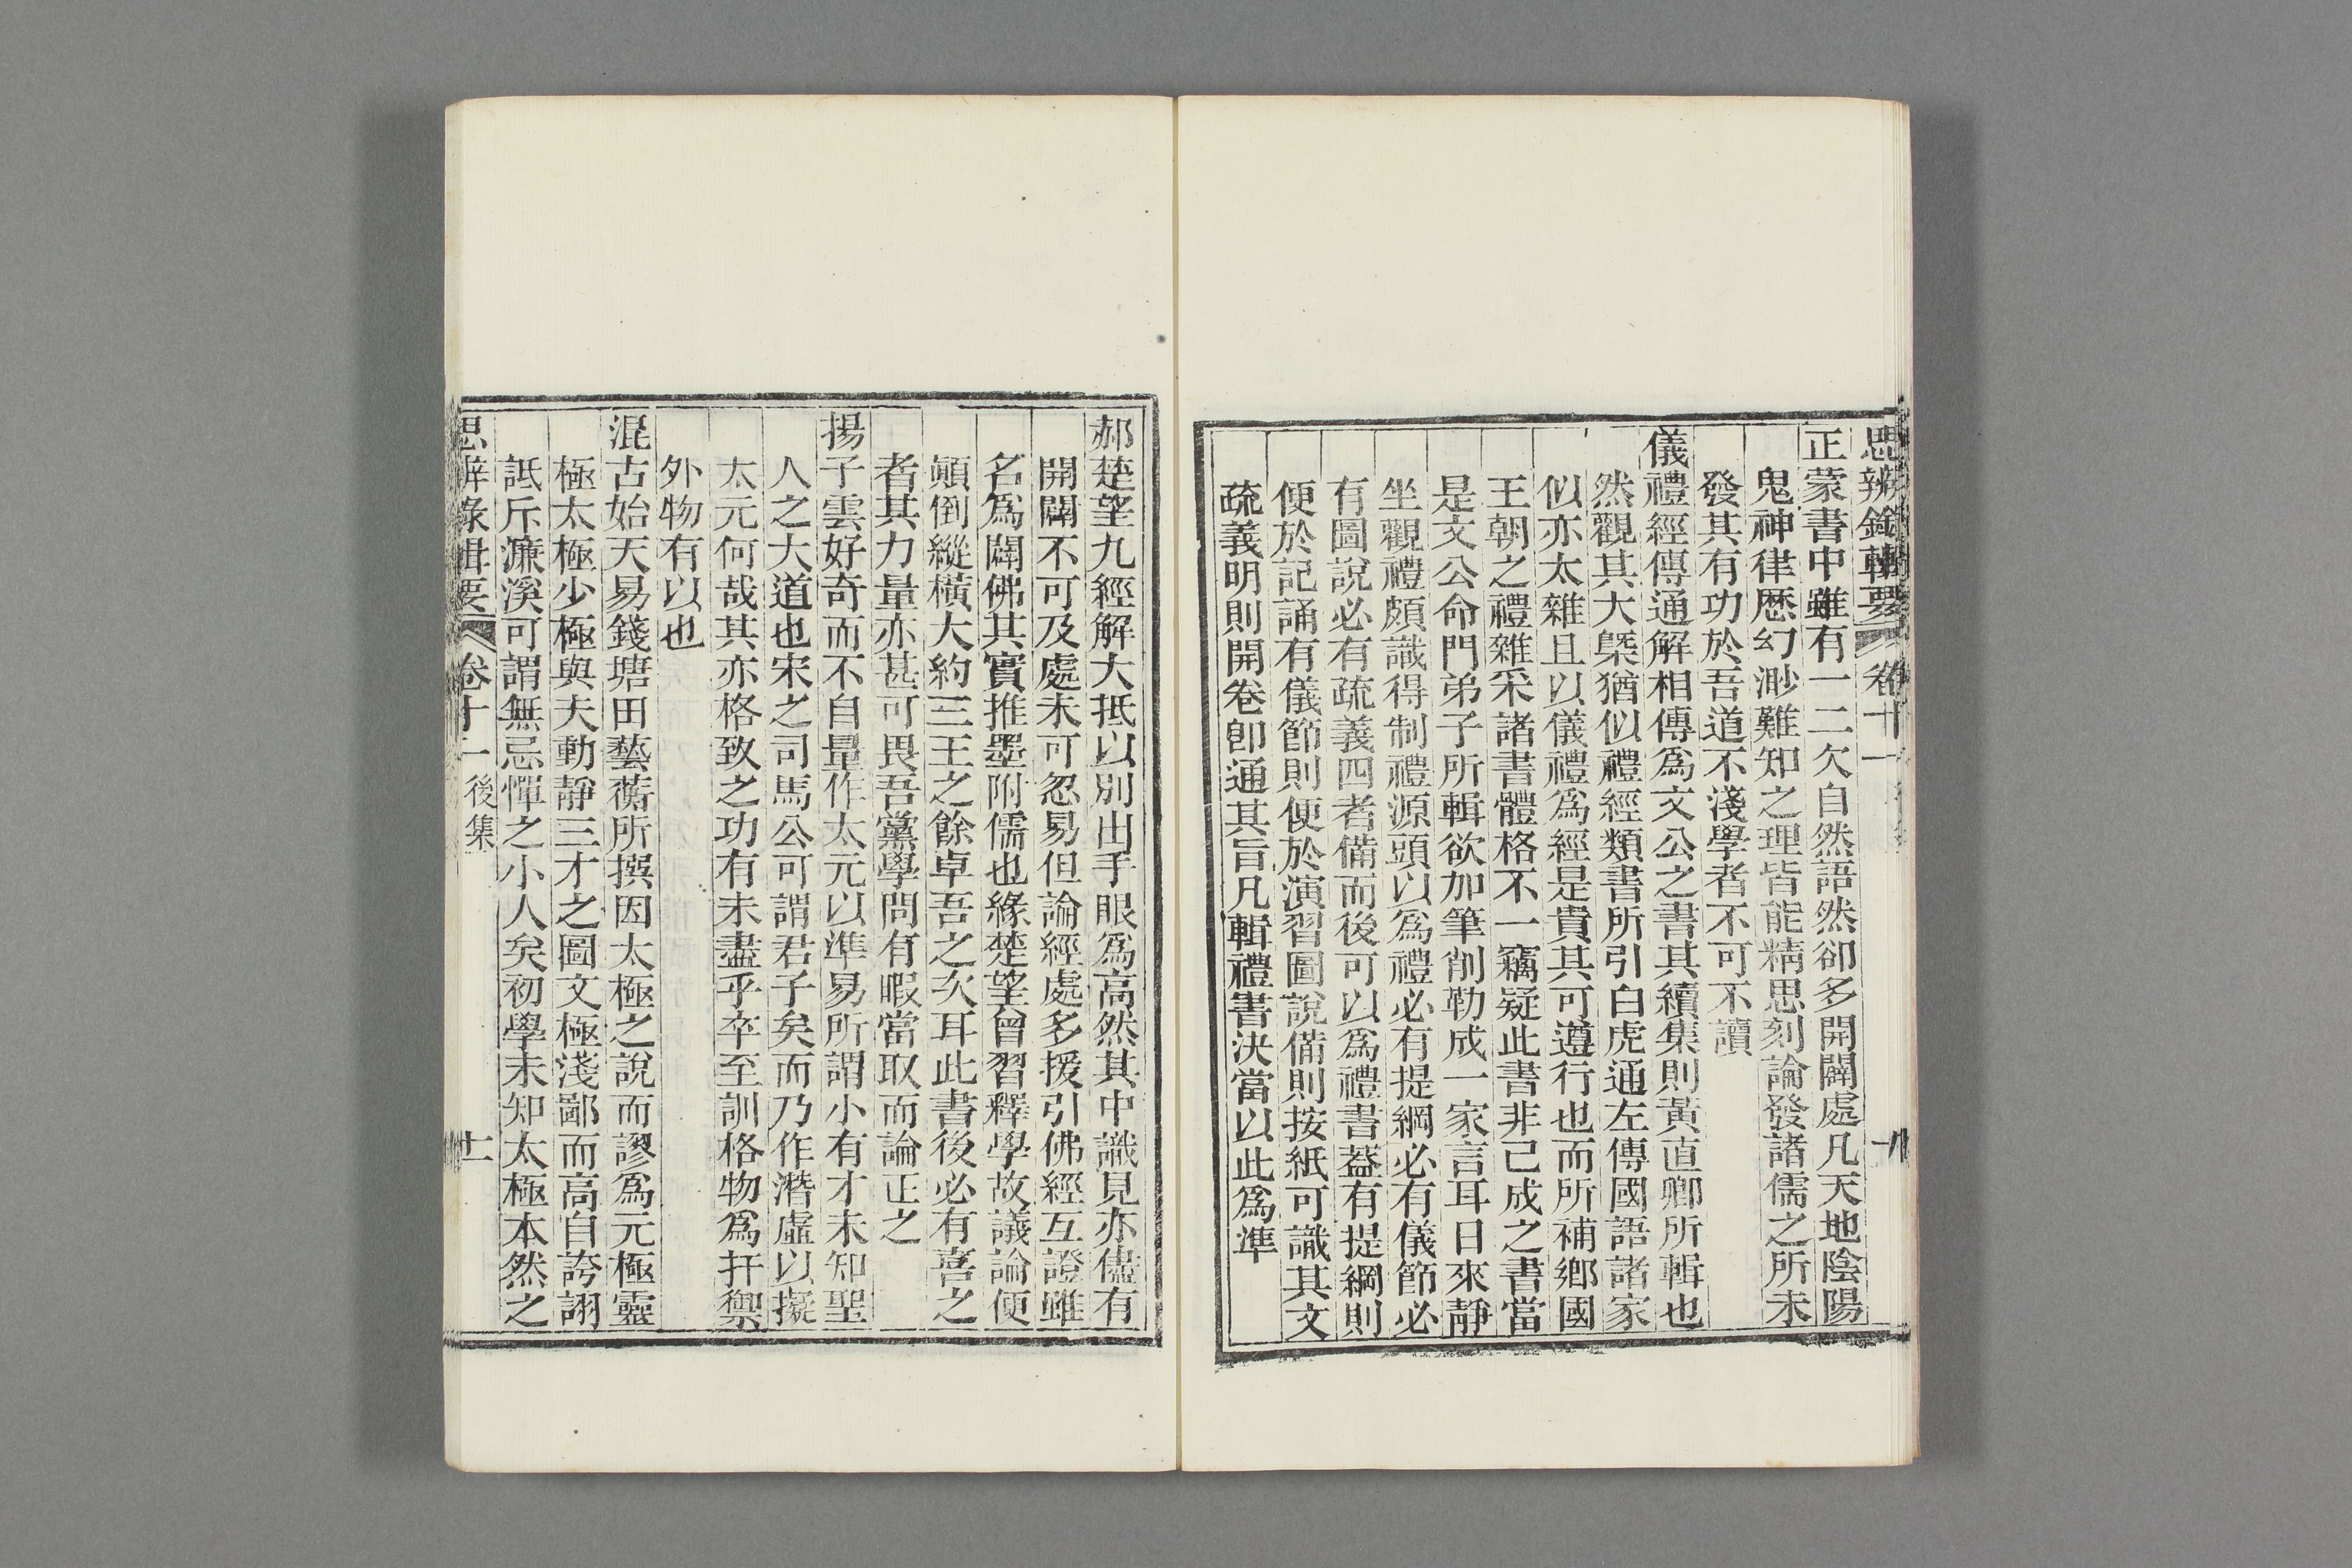 思辨錄輯要　卷十一
正蒙書中雖有一二欠自然語然卻多開闢處凡天地陰陽
鬼神律歷幻渺難知之理皆能精思刻論發諸儒之所未
發其有功於吾道不淺學者不可不讀
儀禮經傳通解相傳爲文公之書其續集則黃直卿所輯也
然觀其大槩猶似禮經類書所引白虎通左傳國語諸家
似亦太雜且以儀禮爲經是貴其可遵行也而所補鄉國
王朝之禮雜采諸書體格不一竊疑此書非己成之書當
是文公命門弟子所輯欲加筆削勒成一家言耳日來靜
坐觀禮頗識得制禮源頭以爲禮必有提綱必有儀節必
有圖說必有疏義四者備而後可以爲禮書葢有提綱則
便於記誦有儀節則便於演習圖說備則按紙可識其文
疏義明則開卷卽通其旨凡輯禮書決當以此爲準
郝楚望九經解大抵以別出手眼爲高然其中識見亦儘有
開闢不可及處未可忽易但論經處多援引佛經互證雖
名爲闢佛其實推墨附儒也緣楚望曾習釋學故議論便
顚倒縱橫大約三王之餘卓吾之次耳此書後必有喜之
者其力量亦甚可畏吾黨學問有暇當取而論正之
揚子雲好奇而不自量作太元以準易所謂小有才未知聖
人之大道也宋之司馬公可謂君子矣而乃作潛虛以擬
太元何哉其亦格致之功有未盡乎卒至訓格物爲扞禦
外物有以也
混古始天易錢塘田藝蘅所撰因太極之說而謬爲元極靈
極太極少極與夫動靜三才之圖文極淺鄙而高自誇詡
詆斥濂溪可謂無忌憚之小人矣初學未知太極本然之
思辨錄輯要　卷十一　後集　十一